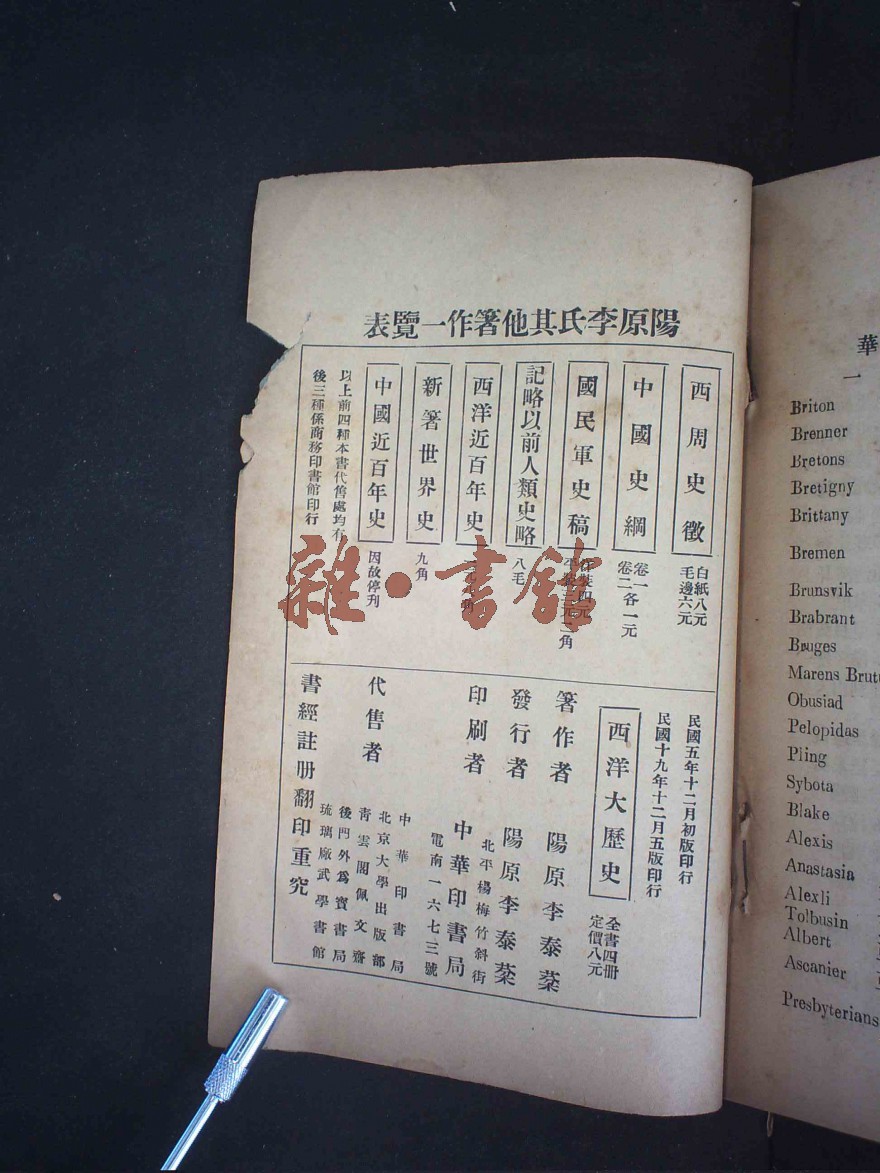 陽原李氏其他箸作一覽表
西周史徵
白紙八元
毛邊六元
中國史綱
卷一
卷二各一元
國民軍史稿
記略以前人類史略
八毛
西洋近百年史
新箸世界史
九角
中國近百年史
因故停刊
以上前四種本書代售處均有
後三種係商務印書館印行
民國五年十二月初版印行
民國十九年十二月五版印行
西洋大歷史
全書四冊
定價八元
箸作者 陽原李泰棻
發行者 陽原李泰棻
印刷者
北平楊梅竹斜街
中華印書局
電南一六七三號
代售者
中華印書局
北京大學出版部
青雲閣佩文齋
後門外爲寶書局
琉璃廠武學書館
書經註册翻印重究
雜·書館
華
一
Briton
Brenner
Bretons
Bretigny
Brittany
Bremen
Brunsvik
Brabrant
Bruges
Marens Brutt
Obusiad
Pelopidas
Pling
Sybota
Blake
Alexis
Anastasia
Alexli
Tolbusin
Albert
Ascanier
Presbyterians